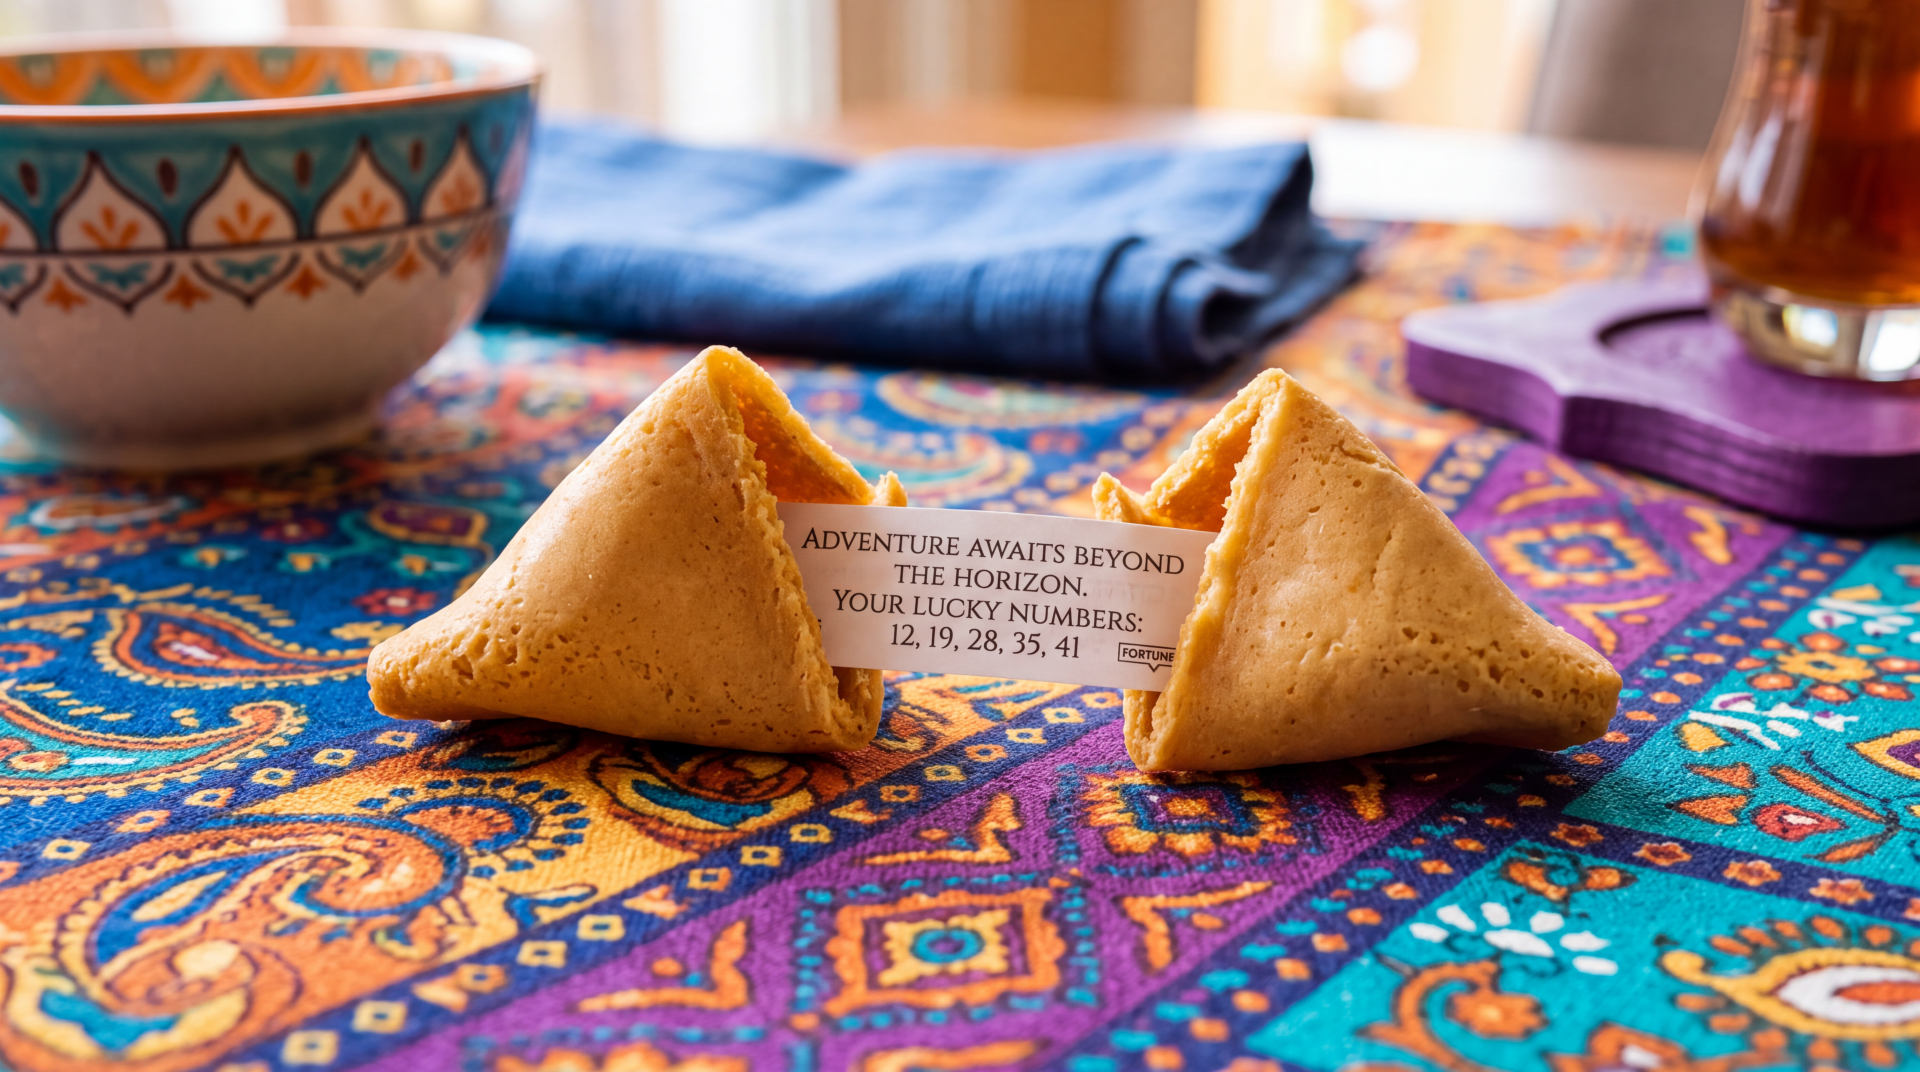 ADVENTURE AWAITS BEYOND
THE HORIZON.
YOUR LUCKY NUMBERS:
12, 19, 28, 35, 41
FORTUNE